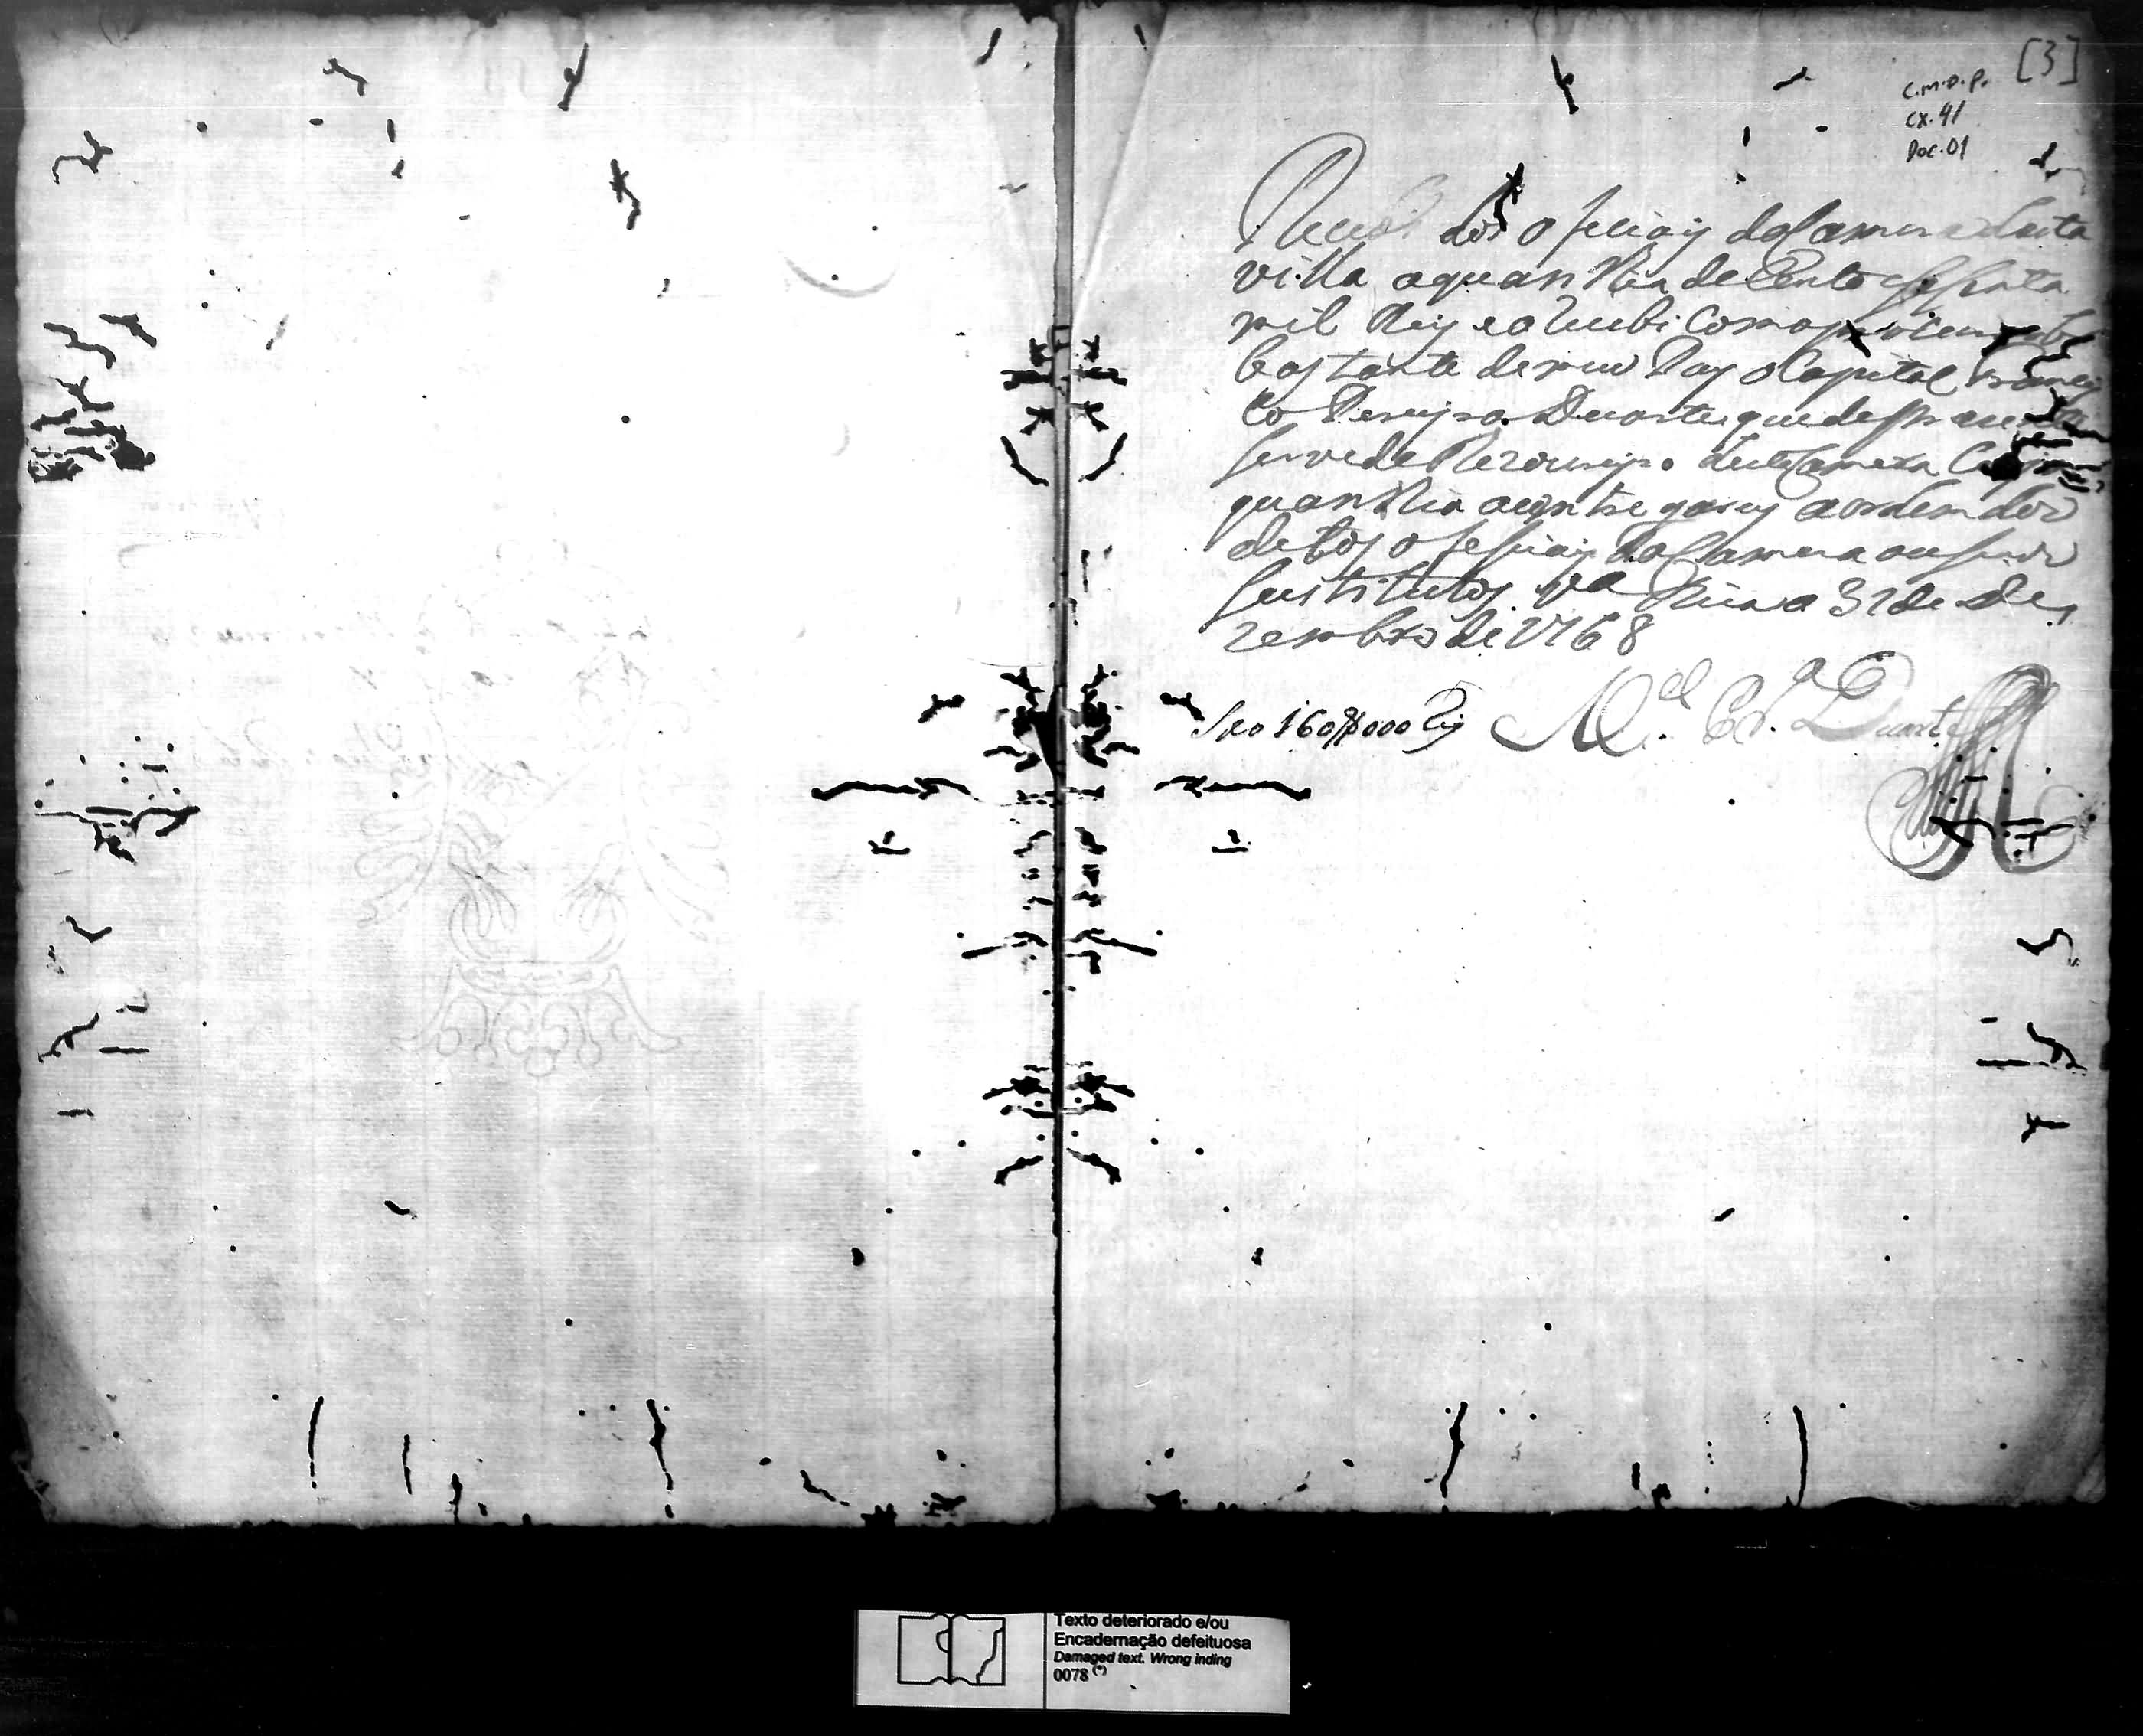 [3]
C.M.O.P.
CX. 41
Doc. 01
Recebi dos ofeciais da Camera desta
villa aquantia de Cento e seSenta
mil Reis e o Recebi Como procurador
bastante de meu Pay o Capitao Francis
co Pereyra Duarte que de prezente
serve de Tezoureyro desta Camera Cuja
quantia aentregarey aordem dos
ditos ofesiais da Camera ou seus
sustitutos Va Rica a 31 de De
zembro de 1768
São 160$000 Reis Mel Pra Duarte
Texto deteriorado e/ou
Encadernação defeituosa
Damaged text. Wrong inding
0078 (*)